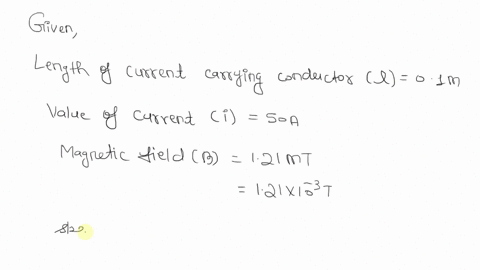 Given,
Length of current carrying conductor (l) = 0.1m
Value of current (i) = 50A
Magnetic field (B) = 1.21 mT
= 1.21 × 10⁻³ T